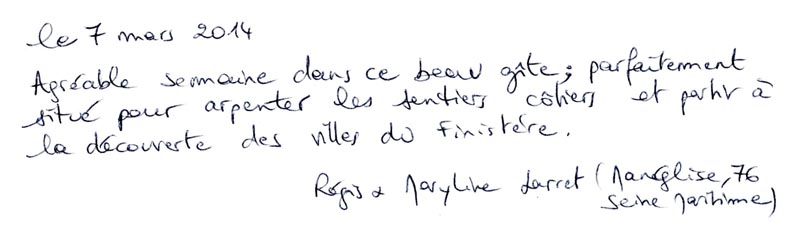 le 7 mars 2014
Agréable semaine dans ce beau gîte ; parfaitement
situé pour arpenter les sentiers côtiers et partir à
la découverte des villes du Finistère.
Régis & Maryline Larret (Manéglise, 76
Seine Maritime)